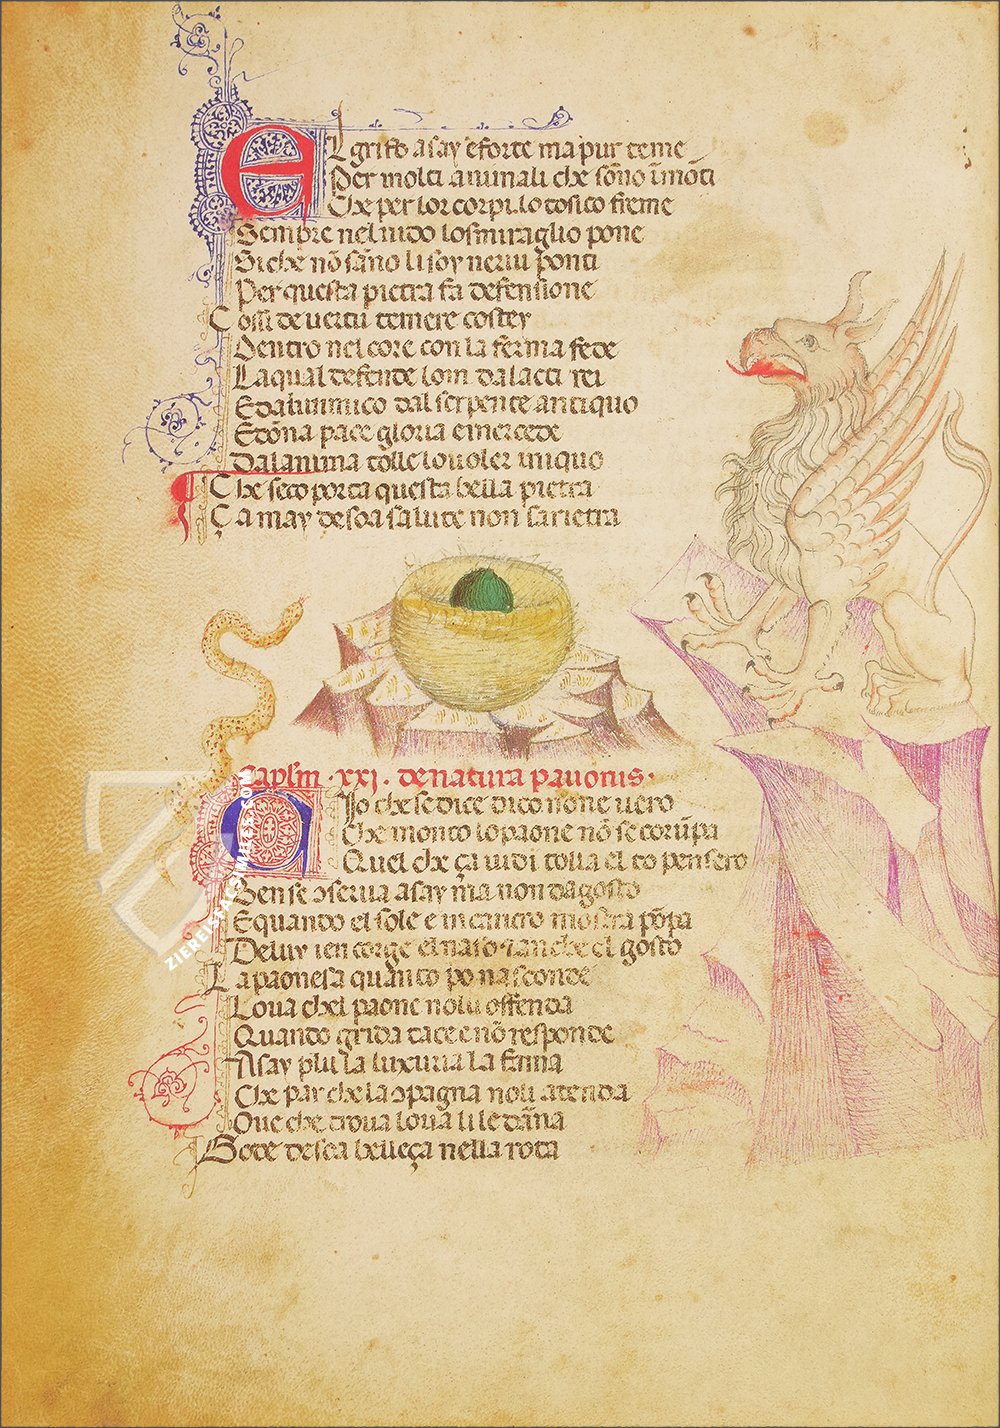 El grifo asay e forte ma pur teme
Per molti animali che sono i mōti
Che per lor corpi lo tosico freme
Sempre nel nido lo smiraglio pone
Siche nō sāno li soy neriu ponti
Per questa pietra fa defensione
Cossi de uertu temere costey
Dentro nel core con la ferma fede
La qual defende lom dalacti rei
E dalinimico dal serpente antiquo
E dōna pace gloria e mercede
Dalanima tolle louoler iniquo
Che seco porta questa bella pietra
Ça may desoa salute non sarietra
Caplm · xxi · de natura pauonis ·
Cio che se dice dico none uero
Che monto lo paone nō se corūpa
Quel che ça uidi tolla el to pensero
Ben se ɔserua asay ma non dagosto
E quando el sole e in cancro mostra pōpa
De luy ien torge el naso anche el gosto
La paonesa quanto po nasconde
Loua chel paone noli offenda
Quando grida tace e nō responde
Asay plu la luxuria la fama
Che par che la ɔpagna noli atenda
Oue che troua loua li le dāna
Gode desoa belleça nella rota
ZIEREISFACSIMILES.COM